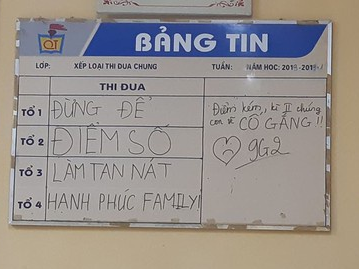 QT
BẢNG TIN
LỚP: XẾP LOẠI THI ĐUA CHUNG TUẦN: NĂM HỌC: 2018-2019
THI ĐUA
TỔ 1 ĐỪNG ĐỂ
TỔ 2 ĐIỂM SỐ
TỔ 3 LÀM TAN NÁT
TỔ 4 HẠNH PHÚC FAMILY!
Điểm kém, kì II chúng
con sẽ CỐ GẮNG !!
9G2